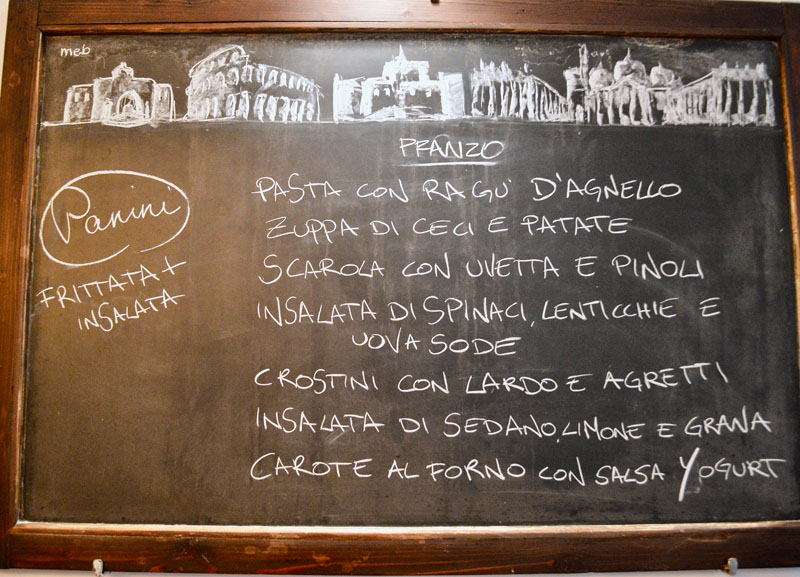 meb
PRANZO
Panini
FRITTATA +
INSALATA
PASTA CON RAGU' D'AGNELLO
ZUPPA DI CECI E PATATE
SCAROLA CON UVETTA E PINOLI
INSALATA DI SPINACI, LENTICCHIE E
UOVA SODE
CROSTINI CON LARDO E AGRETTI
INSALATA DI SEDANO, LIMONE E GRANA
CAROTE AL FORNO CON SALSA YOGURT